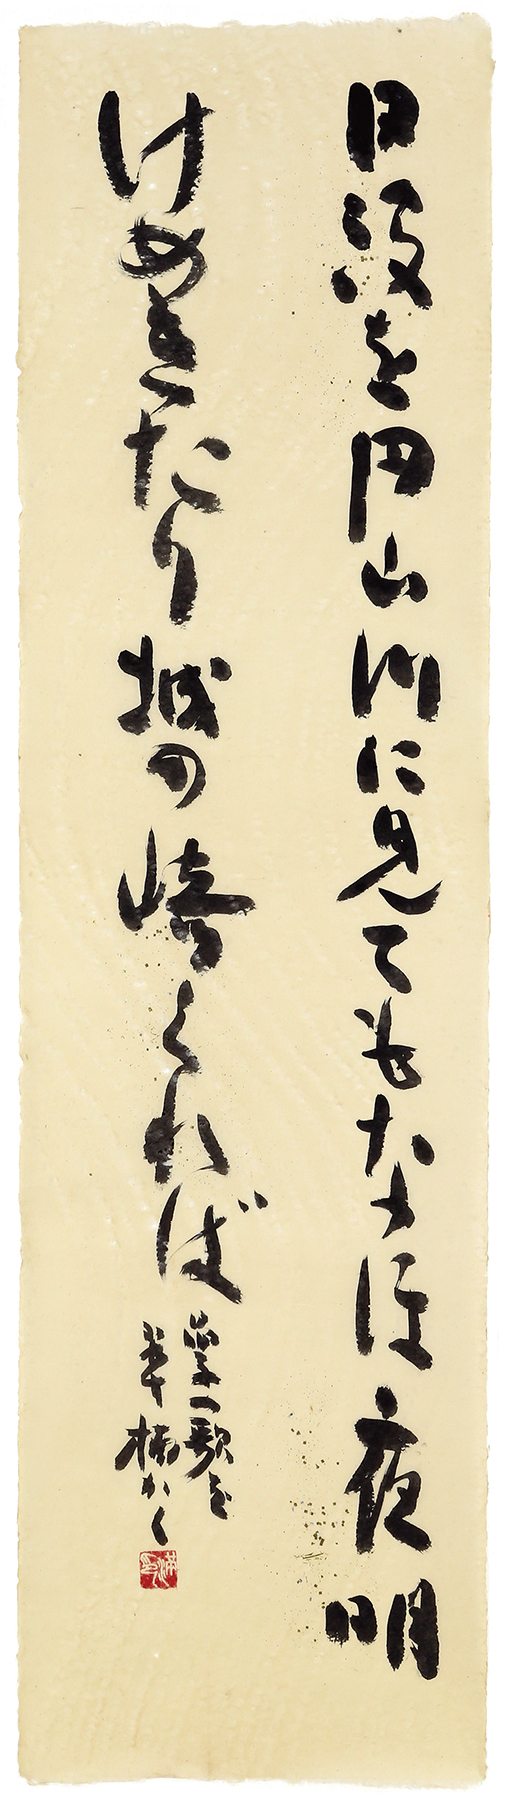 日没を円山川に見てもなほ夜明
けめきたり城の崎くれば
学一歌を
半楠かく